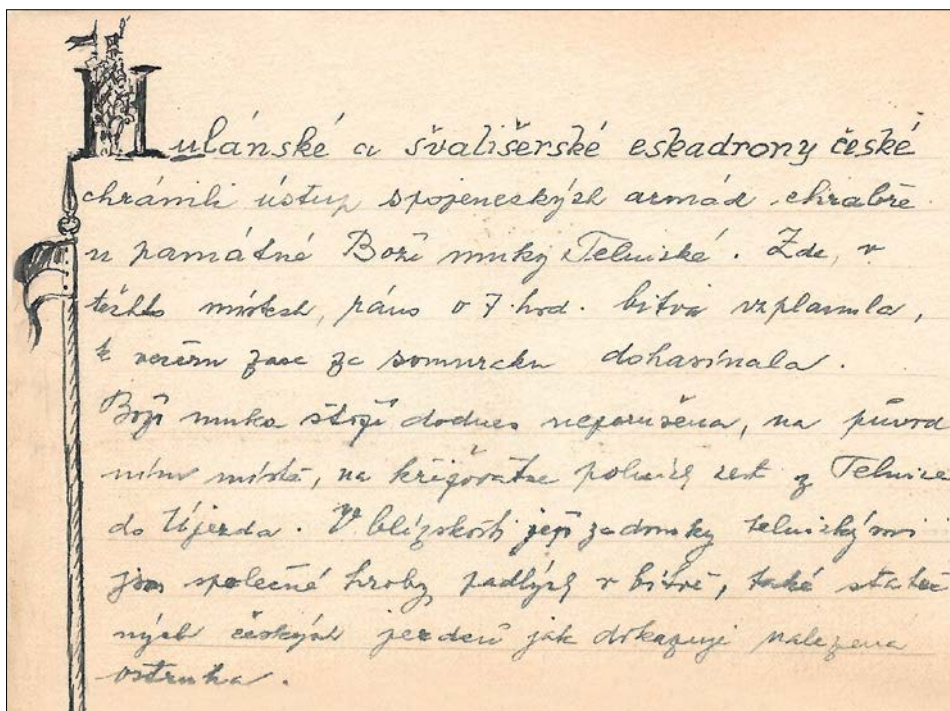 Hulánské a švališerské eskadrony české
chránili ústup spojeneckých armád chrabře
u památné Boží muky Telnické. Zde, v
těchto místech, ráno o 7. hod. bitva vzplanula,
k večeru zase za soumraku dohasínala.
Boží muka stojí dodnes neporušena, na původ
ním místě, na křižovatce polních cest z Telnice
do Újezda. V blízkosti její za domky telnickými
jsou společné hroby padlých v bitvě, také stateč
ných českých jezdců jak dokazuje nalezena
ostruha.